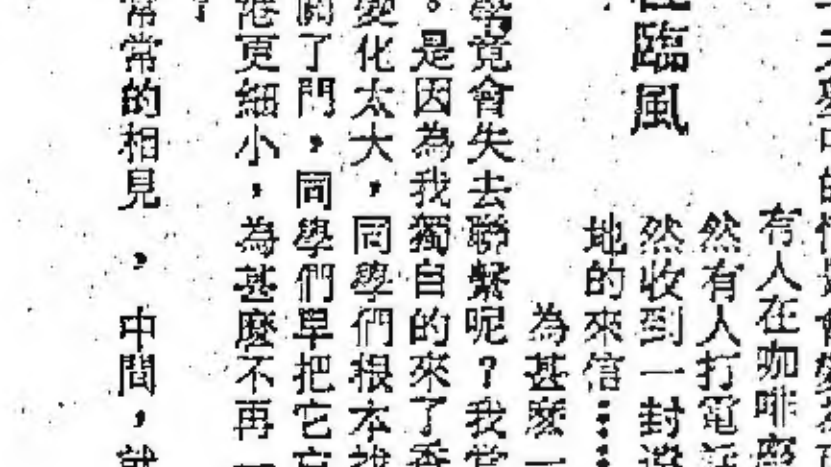 中的情景會變為
有人在咖啡座
然有人打電話
然收到一封遠
地的來信：
臨風
為甚麼一
學竟會失去聯繫呢？我常
。是因為我獨自的來了香
變化太大，同學們根本找
關了門，同學們早把它忘
港更細小，為甚麼不再一
了
常常的相見，中間，就